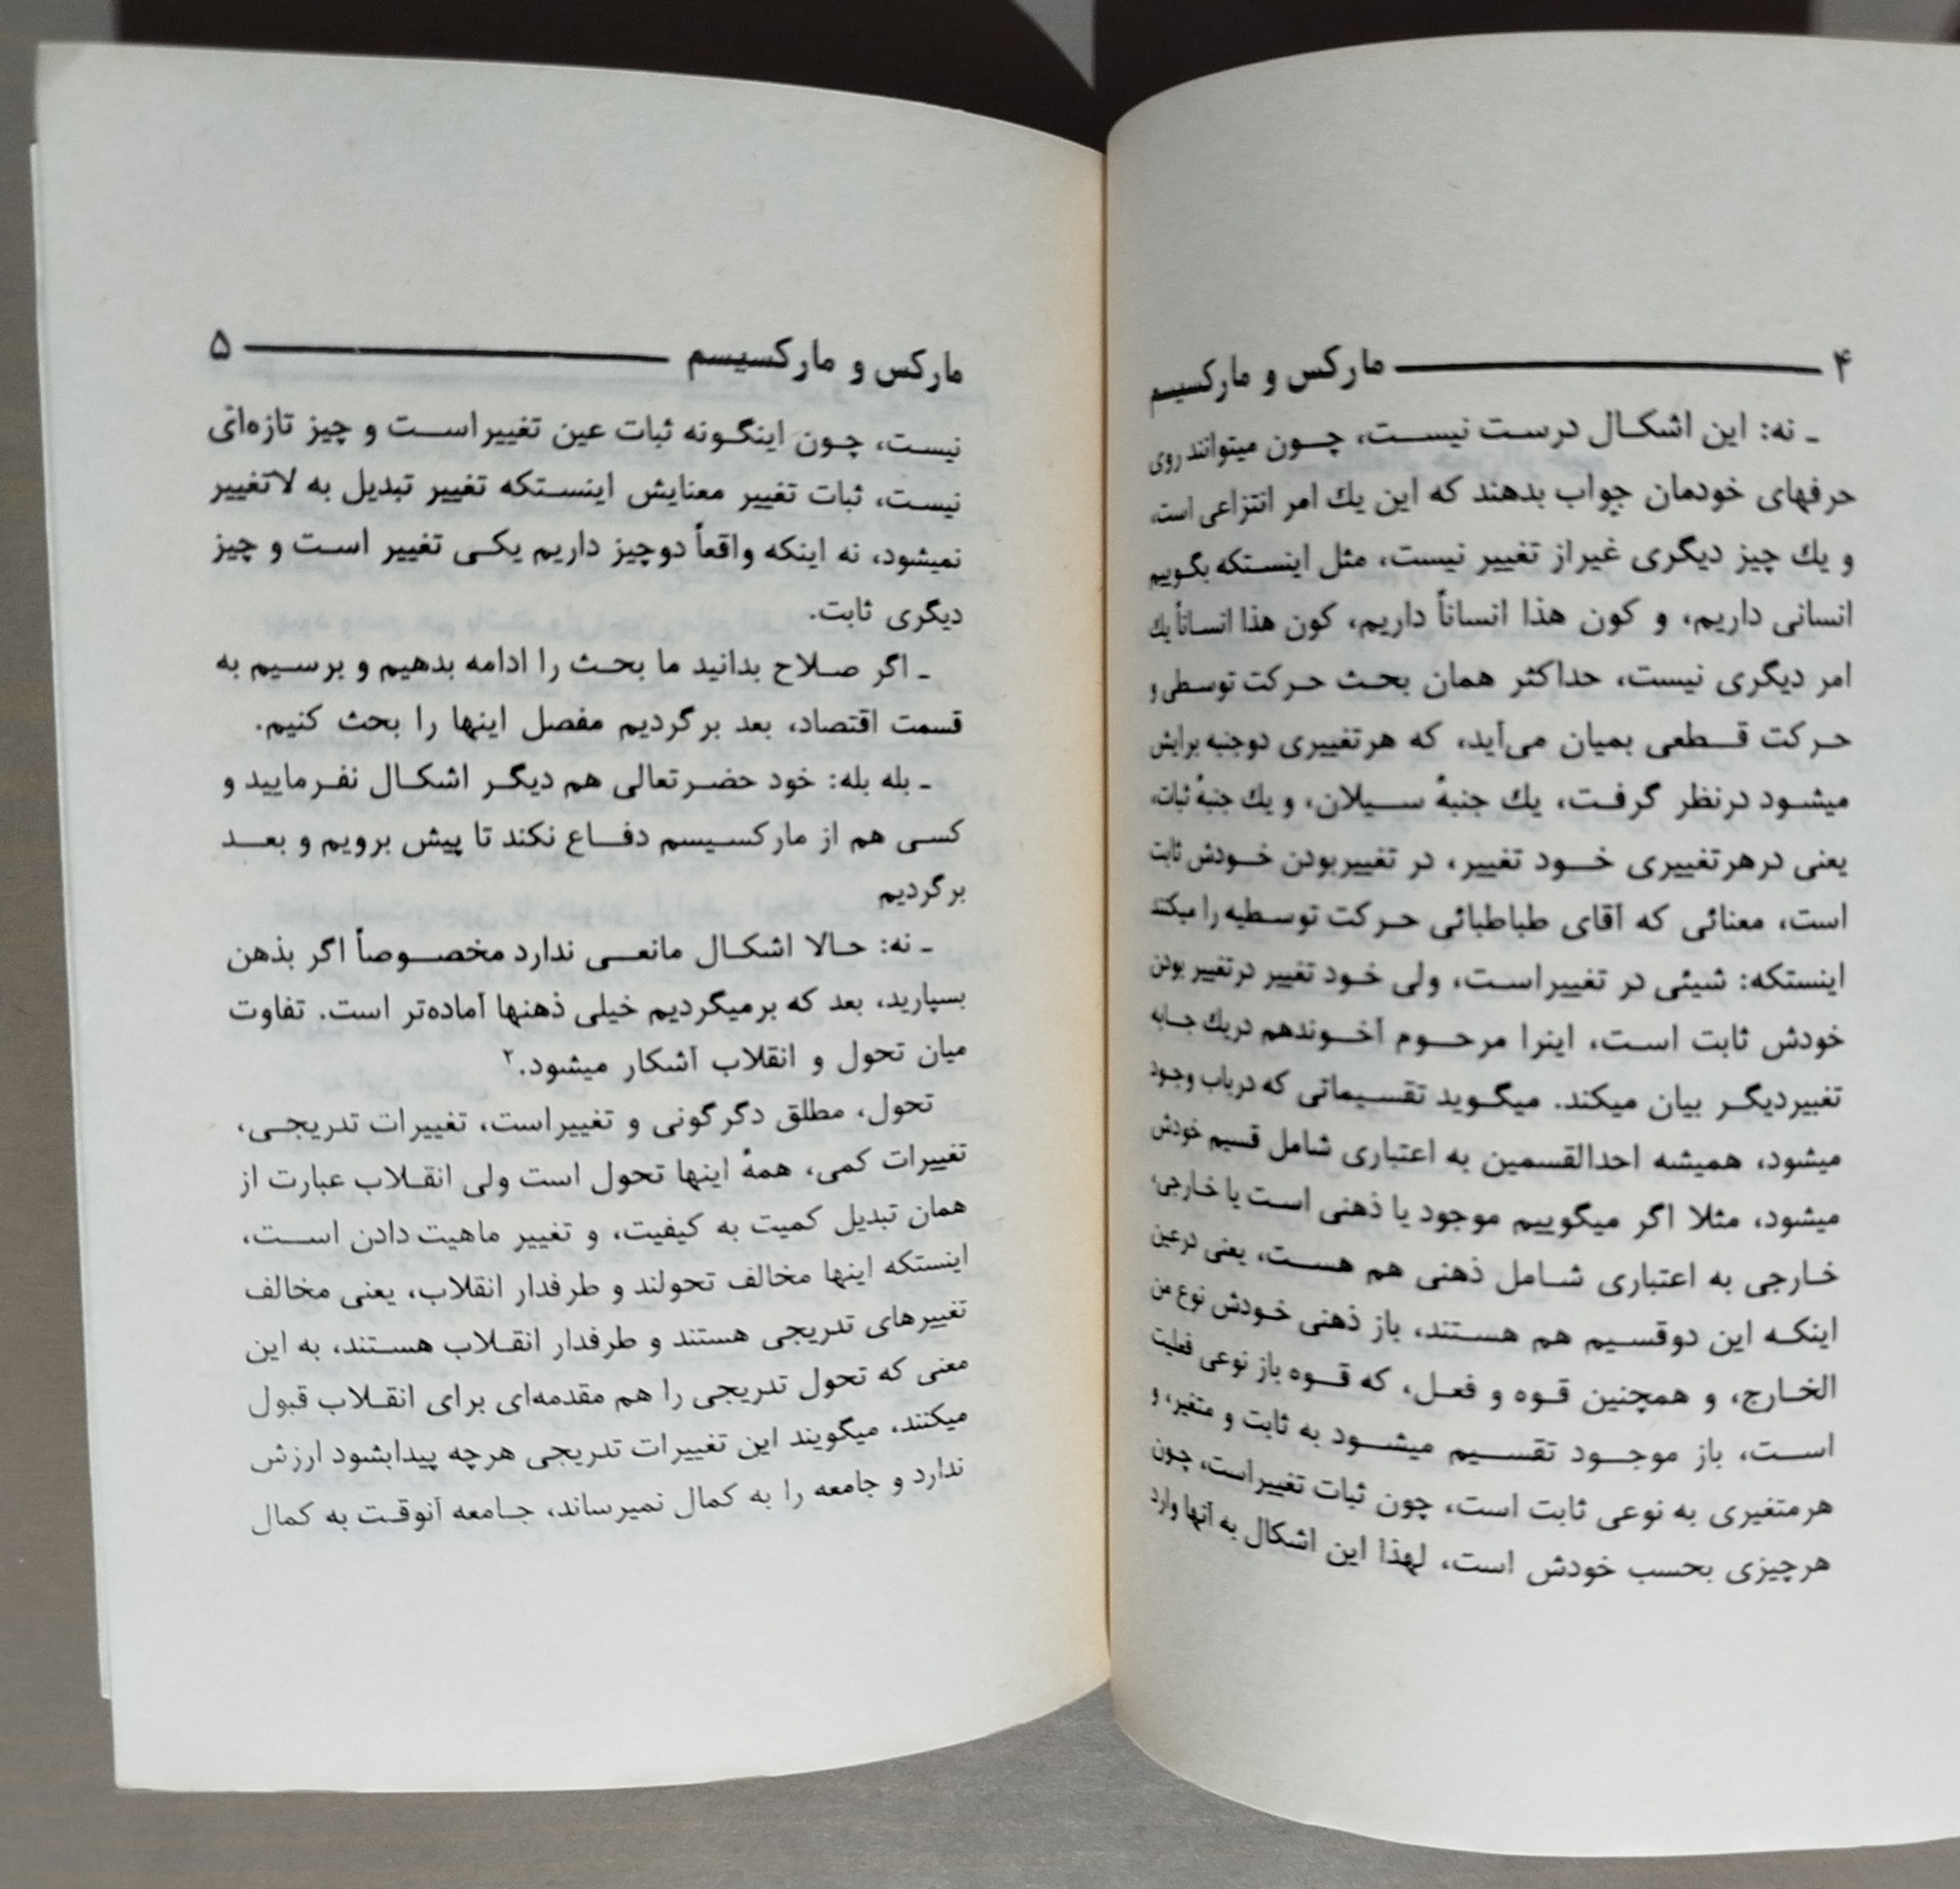 ۴ مارکس و مارکسیسم
ـ نه: این اشکال درست نیست، چون میتوانند روی
حرفهای خودمان جواب بدهند که این یك امر انتزاعی است،
و یك چیز دیگری غیراز تغییر نیست، مثل اینستکه بگوییم
انسانی داریم، و کون هذا انساناً داریم، کون هذا انساناً یك
امر دیگری نیست، حداکثر همان بحث حرکت توسطی و
حرکت قطعی بمیان می‌آید، که هرتغییری دوجنبه برایش
میشود درنظر گرفت، یك جنبهٔ سیلان، و یك جنبهٔ ثبات،
یعنی درهرتغییری خود تغییر، در تغییربودن خودش ثابت
است، معنائی که آقای طباطبائی حرکت توسطیه را میکند
اینستکه: شیئی در تغییراست، ولی خود تغییر درتغییر بودن
خودش ثابت است، اینرا مرحوم آخوندهم دریك جابه
تغبیردیگر بیان میکند. میگوید تقسیماتی که درباب وجود
میشود، همیشه احدالقسمین به اعتباری شامل قسیم خودش
میشود، مثلا اگر میگوییم موجود یا ذهنی است یا خارجی،
خارجی به اعتباری شامل ذهنی هم هست، یعنی درعین
اینکه این دوقسیم هم هستند، باز ذهنی خودش نوع من
الخارج، و همچنین قوه و فعل، که قوه باز نوعی فعلیت
است، باز موجود تقسیم میشود به ثابت و متغیر، و
هرمتغیری به نوعی ثابت است، چون ثبات تغییراست، چون
هرچیزی بحسب خودش است، لهذا این اشکال به آنها وارد
مارکس و مارکسیسم ۵
نیست، چون اینگونه ثبات عین تغییراست و چیز تازه‌ای
نیست، ثبات تغییر معنایش اینستکه تغییر تبدیل به لاتغییر
نمیشود، نه اینکه واقعاً دوچیز داریم یکی تغییر است و چیز
دیگری ثابت.
ـ اگر صلاح بدانید ما بحث را ادامه بدهیم و برسیم به
قسمت اقتصاد، بعد برگردیم مفصل اینها را بحث کنیم.
ـ بله بله: خود حضرتعالی هم دیگر اشکال نفرمایید و
کسی هم از مارکسیسم دفاع نکند تا پیش برویم و بعد
برگردیم
ـ نه: حالا اشکال مانعی ندارد مخصوصاً اگر بذهن
بسپارید، بعد که برمیگردیم خیلی ذهنها آماده‌تر است. تفاوت
میان تحول و انقلاب آشکار میشود.۲
تحول، مطلق دگرگونی و تغییراست، تغییرات تدریجی،
تغییرات کمی، همهٔ اینها تحول است ولی انقلاب عبارت از
همان تبدیل کمیت به کیفیت، و تغییر ماهیت دادن است،
اینستکه اینها مخالف تحولند و طرفدار انقلاب، یعنی مخالف
تغییرهای تدریجی هستند و طرفدار انقلاب هستند، به این
معنی که تحول تدریجی را هم مقدمه‌ای برای انقلاب قبول
میکنند، میگویند این تغییرات تدریجی هرچه پیدابشود ارزش
ندارد و جامعه را به کمال نمیرساند، جامعه آنوقت به کمال